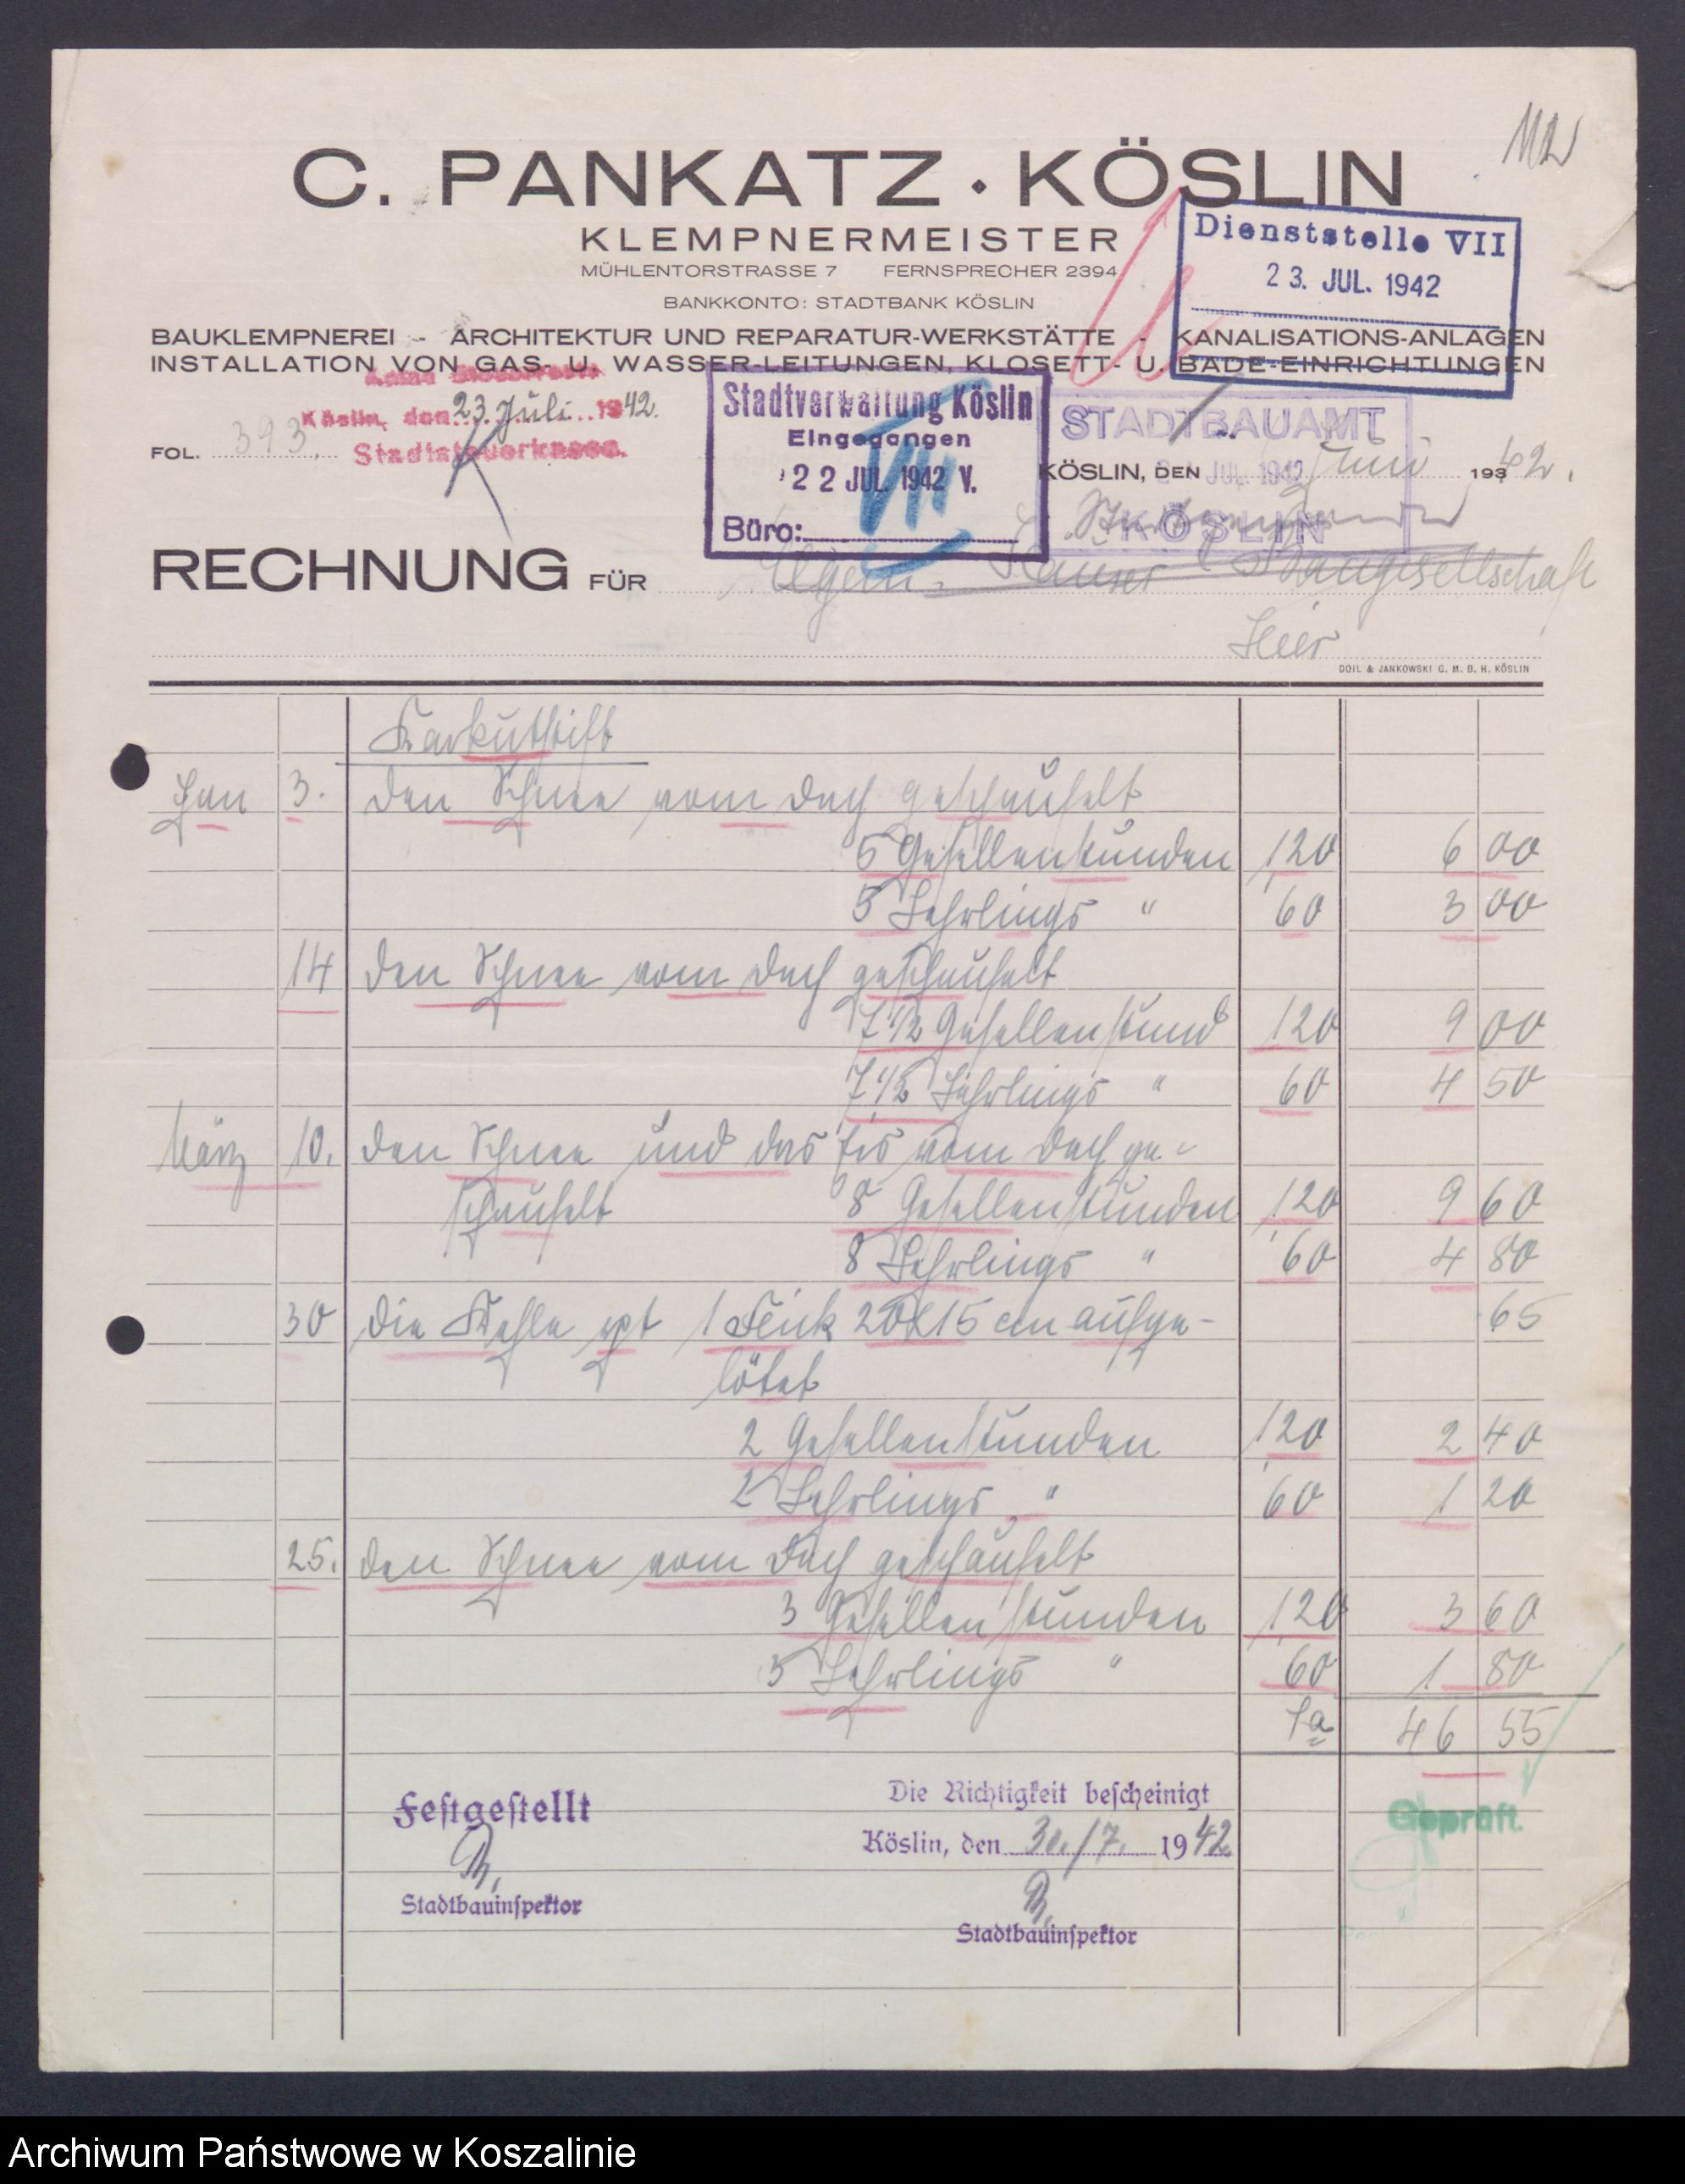 112
C. PANKATZ · KÖSLIN
KLEMPNERMEISTER
MÜHLENTORSTRASSE 7 FERNSPRECHER 2394
BANKKONTO: STADTBANK KÖSLIN
BAUKLEMPNEREI - ARCHITEKTUR UND REPARATUR-WERKSTÄTTE - KANALISATIONS-ANLAGEN
INSTALLATION VON GAS- U. WASSER-LEITUNGEN, KLOSETT- U. BADE-EINRICHTUNGEN
Dienststelle VII
23. JUL. 1942
Köslin, den 23. Juli 1942.
Stadtsteuerkasse.
FOL. 393.
Stadtverwaltung Köslin
Eingegangen
22 JUL. 1942 V.
Büro:
VII
STADTBAUAMT
JUL 1942
KÖSLIN
KÖSLIN, DEN Juni 1942.
RECHNUNG FÜR Allgem. Häuser Baugesellschaft
Hier
DOIL & JANKOWSKI G. M. B. H. KÖSLIN
Karkutstift
Jan 3. den Schnee vom Dach geschaufelt
5 Gesellenstunden 120 6 00
5 Lehrlings " 60 3 00
14 den Schnee vom Dach geschaufelt
7 1/2 Gesellenstund 120 9 00
7 1/2 Lehrlings " 60 4 50
März 10. den Schnee und das Eis vom Dach ge-
schaufelt 8 Gesellenstunden 120 9 60
8 Lehrlings " 60 4 80
30 die Kehle 1 20x15 cm aufge- 65
lötet
2 Gesellenstunden 120 2 40
2 Lehrlings " 60 1 20
25. den Schnee vom Dach geschaufelt
3 Gesellenstunden 120 3 60
3 Lehrlings " 60 1 80
Sa 46 55
Festgestellt
Stadtbauinspektor
Die Richtigkeit bescheinigt
Köslin, den 30./7. 1942
Stadtbauinspektor
Geprüft.
Archiwum Państwowe w Koszalinie